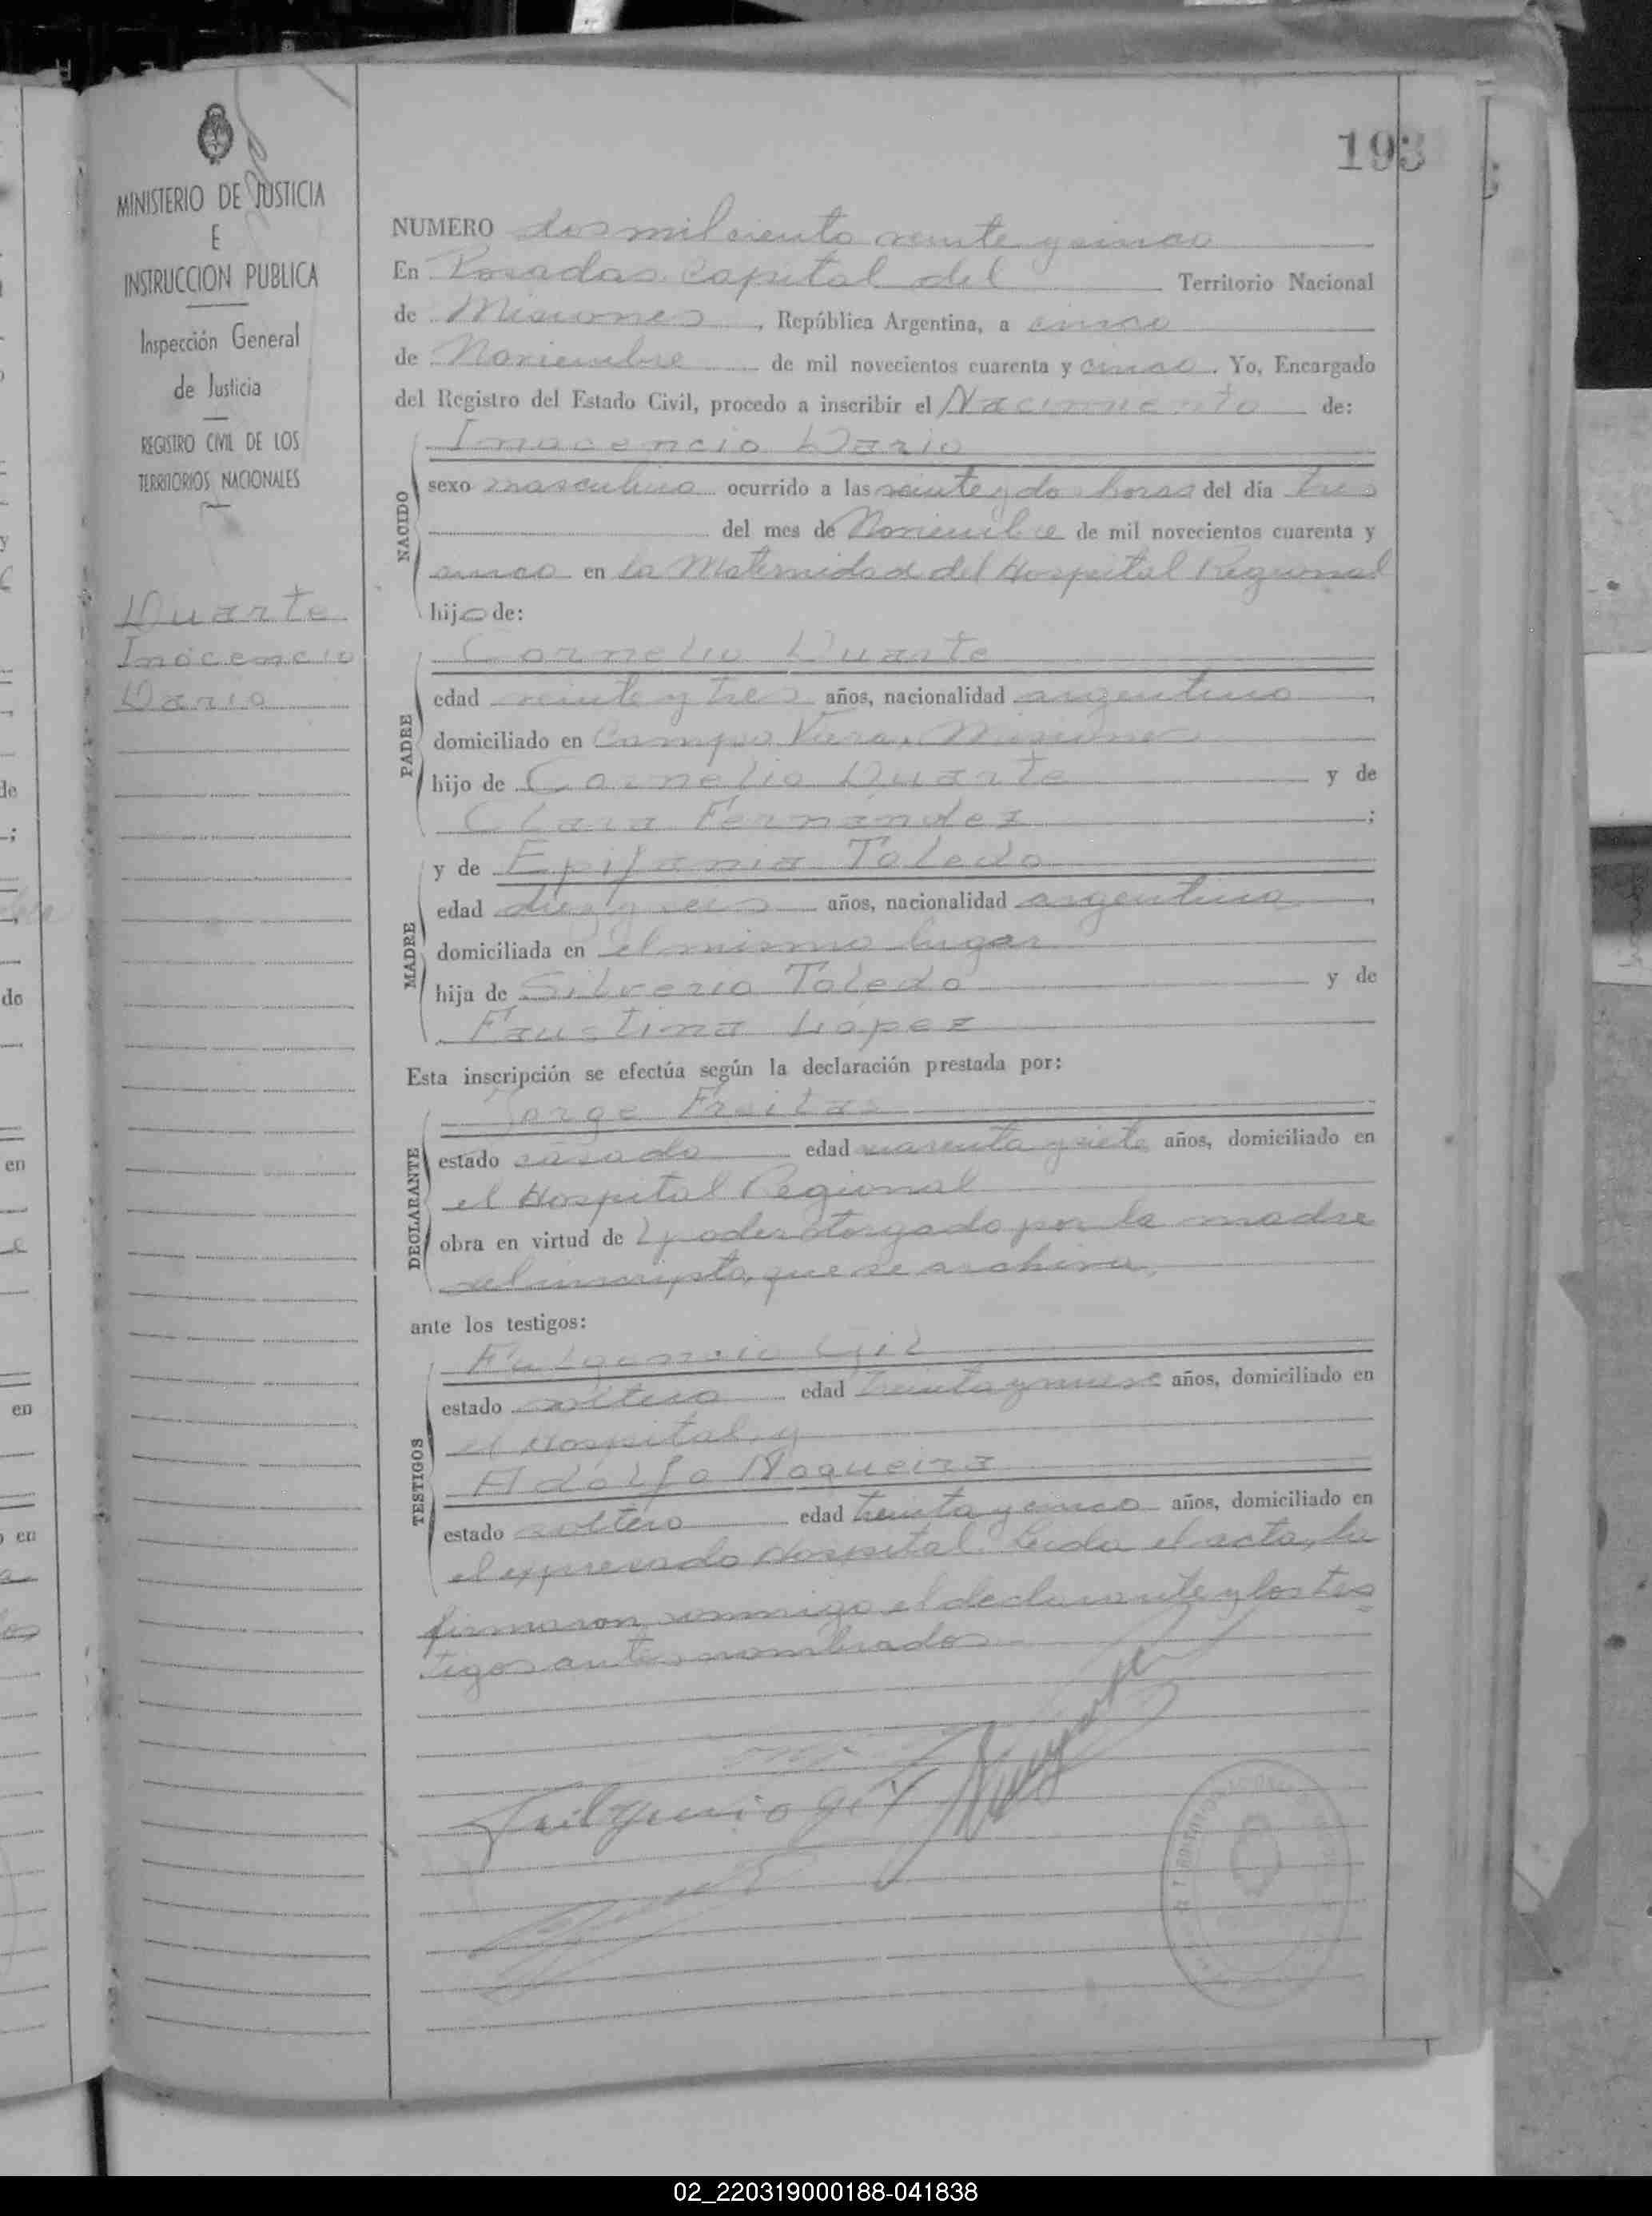 193
MINISTERIO DE JUSTICIA
E
INSTRUCCION PUBLICA
Inspección General
de Justicia
REGISTRO CIVIL DE LOS
TERRITORIOS NACIONALES
Duarte
Inocencio
Dario
NUMERO dos mil ciento veinte y cinco
En Posadas Capital del Territorio Nacional
de Misiones, República Argentina, a cinco
de Noviembre de mil novecientos cuarenta y cinco. Yo, Encargado
del Registro del Estado Civil, procedo a inscribir el Nacimiento de:
NACIDO
Inocencio Dario
sexo masculino ocurrido a las veinte y dos horas del día tres
del mes de Noviembre de mil novecientos cuarenta y
cinco en la Maternidad del Hospital Regional
hijo de:
PADRE
Cornelio Duarte
edad veinte y tres años, nacionalidad argentino,
domiciliado en Campo Viera, Misiones
hijo de Cornelio Duarte y de
Clara Fernández;
MADRE
y de Epifania Toledo
edad diez y seis años, nacionalidad argentina,
domiciliada en el mismo lugar
hija de Silverio Toledo y de
Faustina López
Esta inscripción se efectúa según la declaración prestada por:
DECLARANTE
Jorge Freitas
estado casado edad cuarenta y siete años, domiciliado en
el Hospital Regional
obra en virtud de poder otorgado por la madre
del inscripto, que se archiva.
ante los testigos:
TESTIGOS
Fulgencio Gil
estado soltero edad treinta y nueve años, domiciliado en
el Hospital y
Adolfo Nogueira
estado soltero edad treinta y cinco años, domiciliado en
el expresado Hospital. Leída el acta, la
firmaron conmigo el declarante y los tes=
tigos antes nombrados.
Fulgencio Gil
02_220319000188-041838